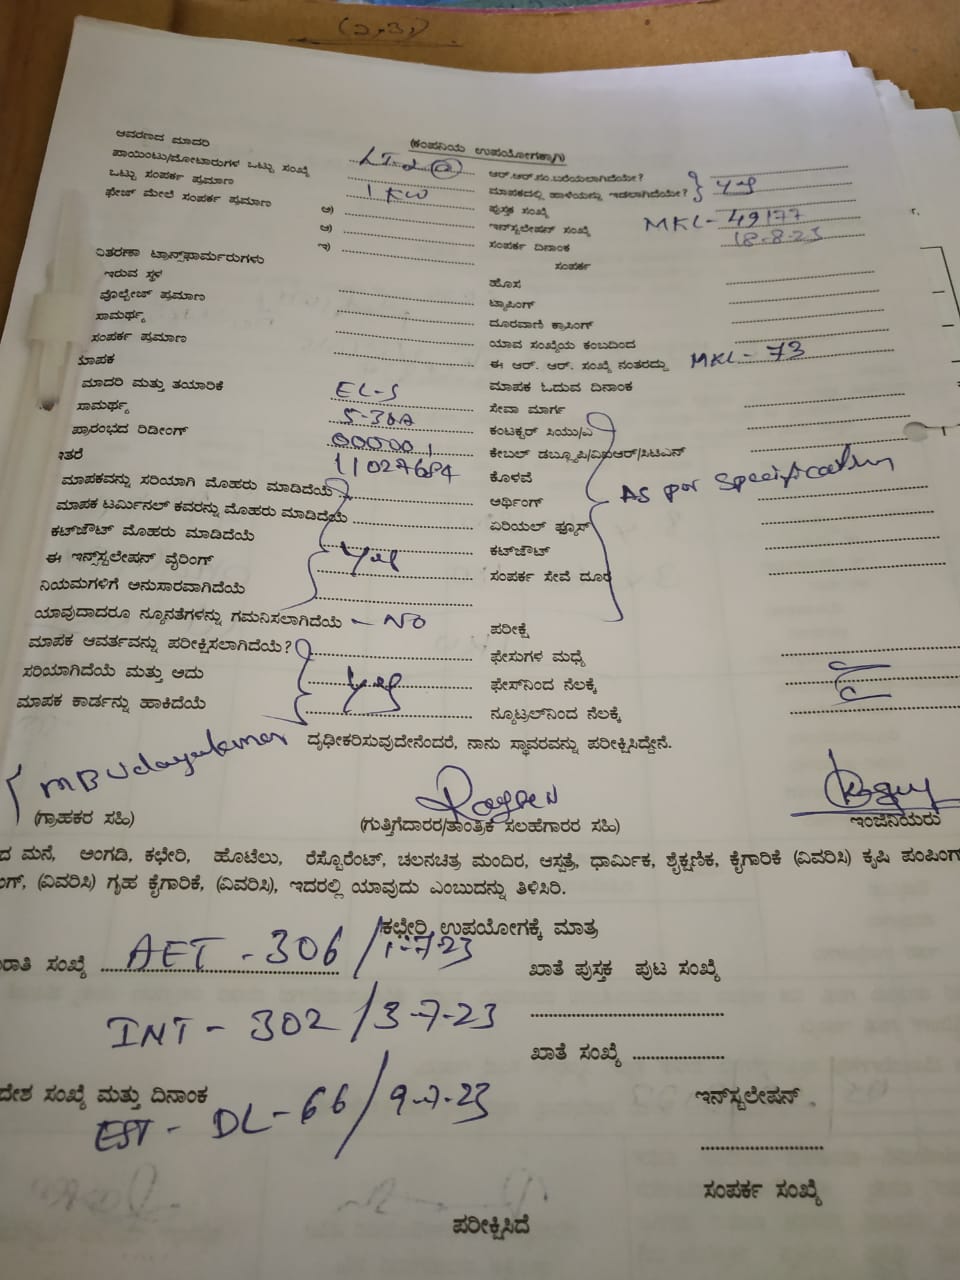 (ಕಂಪನಿಯ ಉಪಯೋಗಕ್ಕಾಗಿ)
ಆವರಣದ ಮಾದರಿ LT-2 (a) ಆರ್.ಆರ್.ಸಂ.ಬರೆಯಲಾಗಿದೆಯೇ?
ಪಾಯಿಂಟು/ಮೋಟಾರುಗಳ ಒಟ್ಟು ಸಂಖ್ಯೆ ಮಾಪಕದಲ್ಲಿ ಹಾಳೆಯನ್ನು ಇಡಲಾಗಿದೆಯೇ? yes
ಒಟ್ಟು ಸಂಪರ್ಕ ಪ್ರಮಾಣ 1 KW ಪುಸ್ತಕ ಸಂಖ್ಯೆ
ಫೇಜ್ ಮೇಲೆ ಸಂಪರ್ಕ ಪ್ರಮಾಣ ಅ) ಇನ್‌ಸ್ಟಲೇಷನ್ ಸಂಖ್ಯೆ MKL-49177
ಆ) ಸಂಪರ್ಕ ದಿನಾಂಕ 18-8-23
ಇ) ಸಂಪರ್ಕ
ವಿತರಣಾ ಟ್ರಾನ್ಸ್‌ಫಾರ್ಮರುಗಳು ಹೊಸ
ಇರುವ ಸ್ಥಳ ಟ್ಯಾಪಿಂಗ್
ವೊಲ್ಟೇಜ್ ಪ್ರಮಾಣ ದೂರವಾಣಿ ಕ್ರಾಸಿಂಗ್
ಸಾಮರ್ಥ್ಯ ಯಾವ ಸಂಖ್ಯೆಯ ಕಂಬದಿಂದ
ಸಂಪರ್ಕ ಪ್ರಮಾಣ ಈ ಆರ್. ಆರ್. ಸಂಖ್ಯೆ ನಂತರದ್ದು MKL- 73
ಮಾಪಕ ಮಾಪಕ ಓದುವ ದಿನಾಂಕ
ಮಾದರಿ ಮತ್ತು ತಯಾರಿಕೆ EL-S ಸೇವಾ ಮಾರ್ಗ
ಸಾಮರ್ಥ್ಯ 5-30A ಕಂಟಕ್ಟರ್ ಸಿಯು/ಎ
ಪ್ರಾರಂಭದ ರಿಡೀಂಗ್ 000001 ಕೇಬಲ್ ಡಬ್ಲ್ಯೂಪಿ/ವಿಐಆರ್/ಸಿಟಿಎಸ್
ಇತರೆ 11027684 ಕೊಳವೆ
ಮಾಪಕವನ್ನು ಸರಿಯಾಗಿ ಮೊಹರು ಮಾಡಿದೆಯೆ ಅರ್ಥಿಂಗ್ As per specification
ಮಾಪಕ ಟರ್ಮಿನಲ್ ಕವರನ್ನು ಮೊಹರು ಮಾಡಿದೆಯೆ ಏರಿಯಲ್ ಫ್ಯೂಸ್
ಕಟ್‌ಜೌಟ್ ಮೊಹರು ಮಾಡಿದೆಯೆ ಕಟ್‌ಜೌಟ್
ಈ ಇನ್ಸ್‌ಸ್ಟಲೇಷನ್ ವೈರಿಂಗ್ yes ಸಂಪರ್ಕ ಸೇವೆ ದೂರ
ನಿಯಮಗಳಿಗೆ ಅನುಸಾರವಾಗಿದೆಯೆ
ಯಾವುದಾದರೂ ನ್ಯೂನತೆಗಳನ್ನು ಗಮನಿಸಲಾಗಿದೆಯೆ - NO ಪರೀಕ್ಷೆ
ಮಾಪಕ ಆವರ್ತವನ್ನು ಪರೀಕ್ಷಿಸಲಾಗಿದೆಯೆ? ಫೇಸುಗಳ ಮಧ್ಯೆ
ಸರಿಯಾಗಿದೆಯೆ ಮತ್ತು ಅದು yes ಫೇಸ್‌ನಿಂದ ನೆಲಕ್ಕೆ
ಮಾಪಕ ಕಾರ್ಡನ್ನು ಹಾಕಿದೆಯೆ ನ್ಯೂಟ್ರಲ್‌ನಿಂದ ನೆಲಕ್ಕೆ
ದೃಢೀಕರಿಸುವುದೇನೆಂದರೆ, ನಾನು ಸ್ಥಾವರವನ್ನು ಪರೀಕ್ಷಿಸಿದ್ದೇನೆ.
MB Udayakumar
(ಗ್ರಾಹಕರ ಸಹಿ) (ಗುತ್ತಿಗೆದಾರರ/ತಾಂತ್ರಿಕ ಸಲಹೆಗಾರರ ಸಹಿ) ಇಂಜಿನಿಯರು
ಮನೆ, ಅಂಗಡಿ, ಕಛೇರಿ, ಹೊಟೆಲು, ರೆಸ್ಟೊರೆಂಟ್, ಚಲನಚಿತ್ರ ಮಂದಿರ, ಆಸ್ಪತ್ರೆ, ಧಾರ್ಮಿಕ, ಶೈಕ್ಷಣಿಕ, ಕೈಗಾರಿಕೆ (ವಿವರಿಸಿ) ಕೃಷಿ ಪಂಪಿಂಗ್
(ವಿವರಿಸಿ) ಗೃಹ ಕೈಗಾರಿಕೆ, (ವಿವರಿಸಿ), ಇದರಲ್ಲಿ ಯಾವುದು ಎಂಬುದನ್ನು ತಿಳಿಸಿರಿ.
ಕಛೇರಿ ಉಪಯೋಗಕ್ಕೆ ಮಾತ್ರ
ಸಂಖ್ಯೆ AET - 306 / 1-7-23 ಖಾತೆ ಪುಸ್ತಕ ಪುಟ ಸಂಖ್ಯೆ
INT - 302 / 3-7-23
ಖಾತೆ ಸಂಖ್ಯೆ
ಸಂಖ್ಯೆ ಮತ್ತು ದಿನಾಂಕ ಇನ್‌ಸ್ಟಲೇಷನ್
EST - DL-66 / 9-7-23
ಸಂಪರ್ಕ ಸಂಖ್ಯೆ
ಪರೀಕ್ಷಿಸಿದೆ